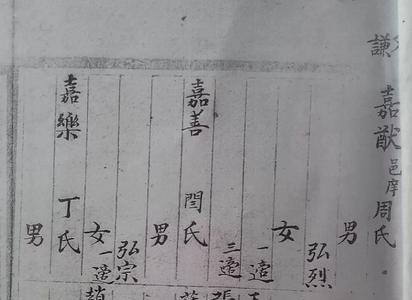 謙
嘉猷 邑庠 周氏
男 弘烈
女 一適
三適
嘉善 閆氏
男 弘宗
女 一適
嘉樂 丁氏
男